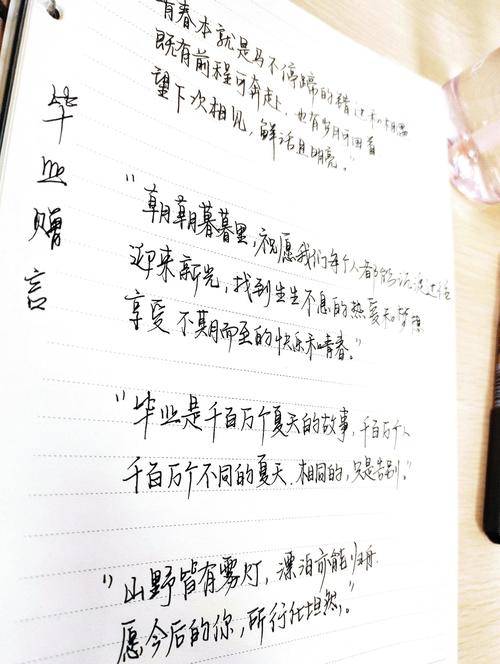 毕业赠言
青春本就是马不停蹄的错过和相遇
既有前程可奔赴，也有岁月可回首
望下次相见，鲜活且明亮。”
“朝朝暮暮里，祝愿我们每个人都能诉说过往
迎来新光，找到生生不息的热爱和梦想
享受不期而至的快乐和青春。”
“毕业是千百万个夏天的故事，千百万人
千百万个不同的夏天.相同的，只是告别。”
“山野皆有雾灯，漂泊亦能归舟.
愿今后的你，所行化坦然。”